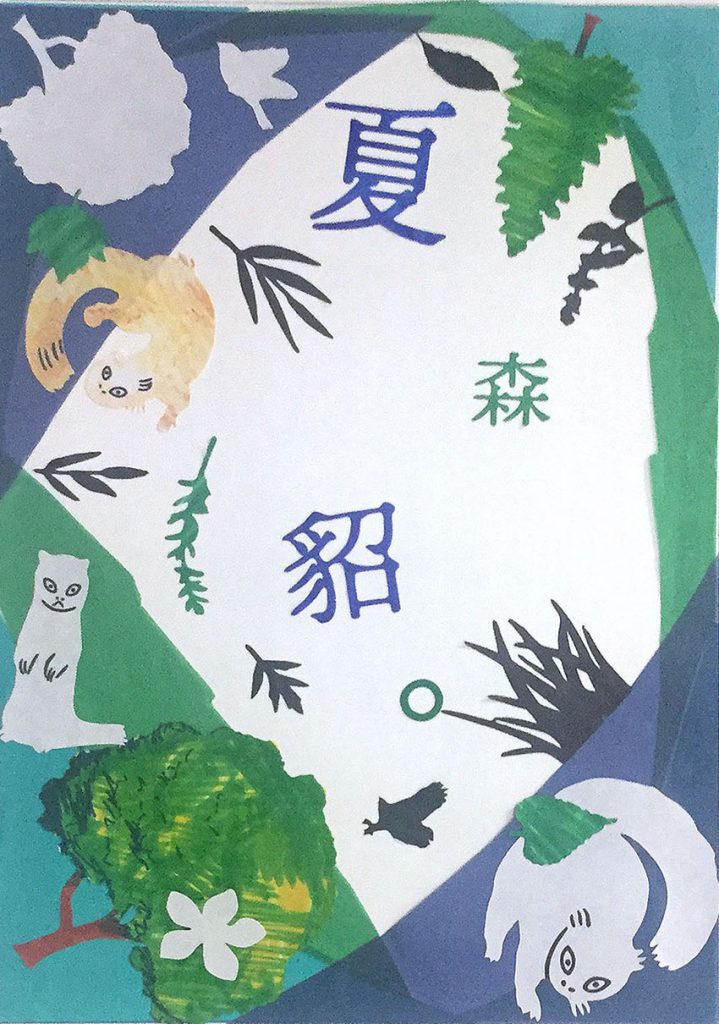 夏
森
貂